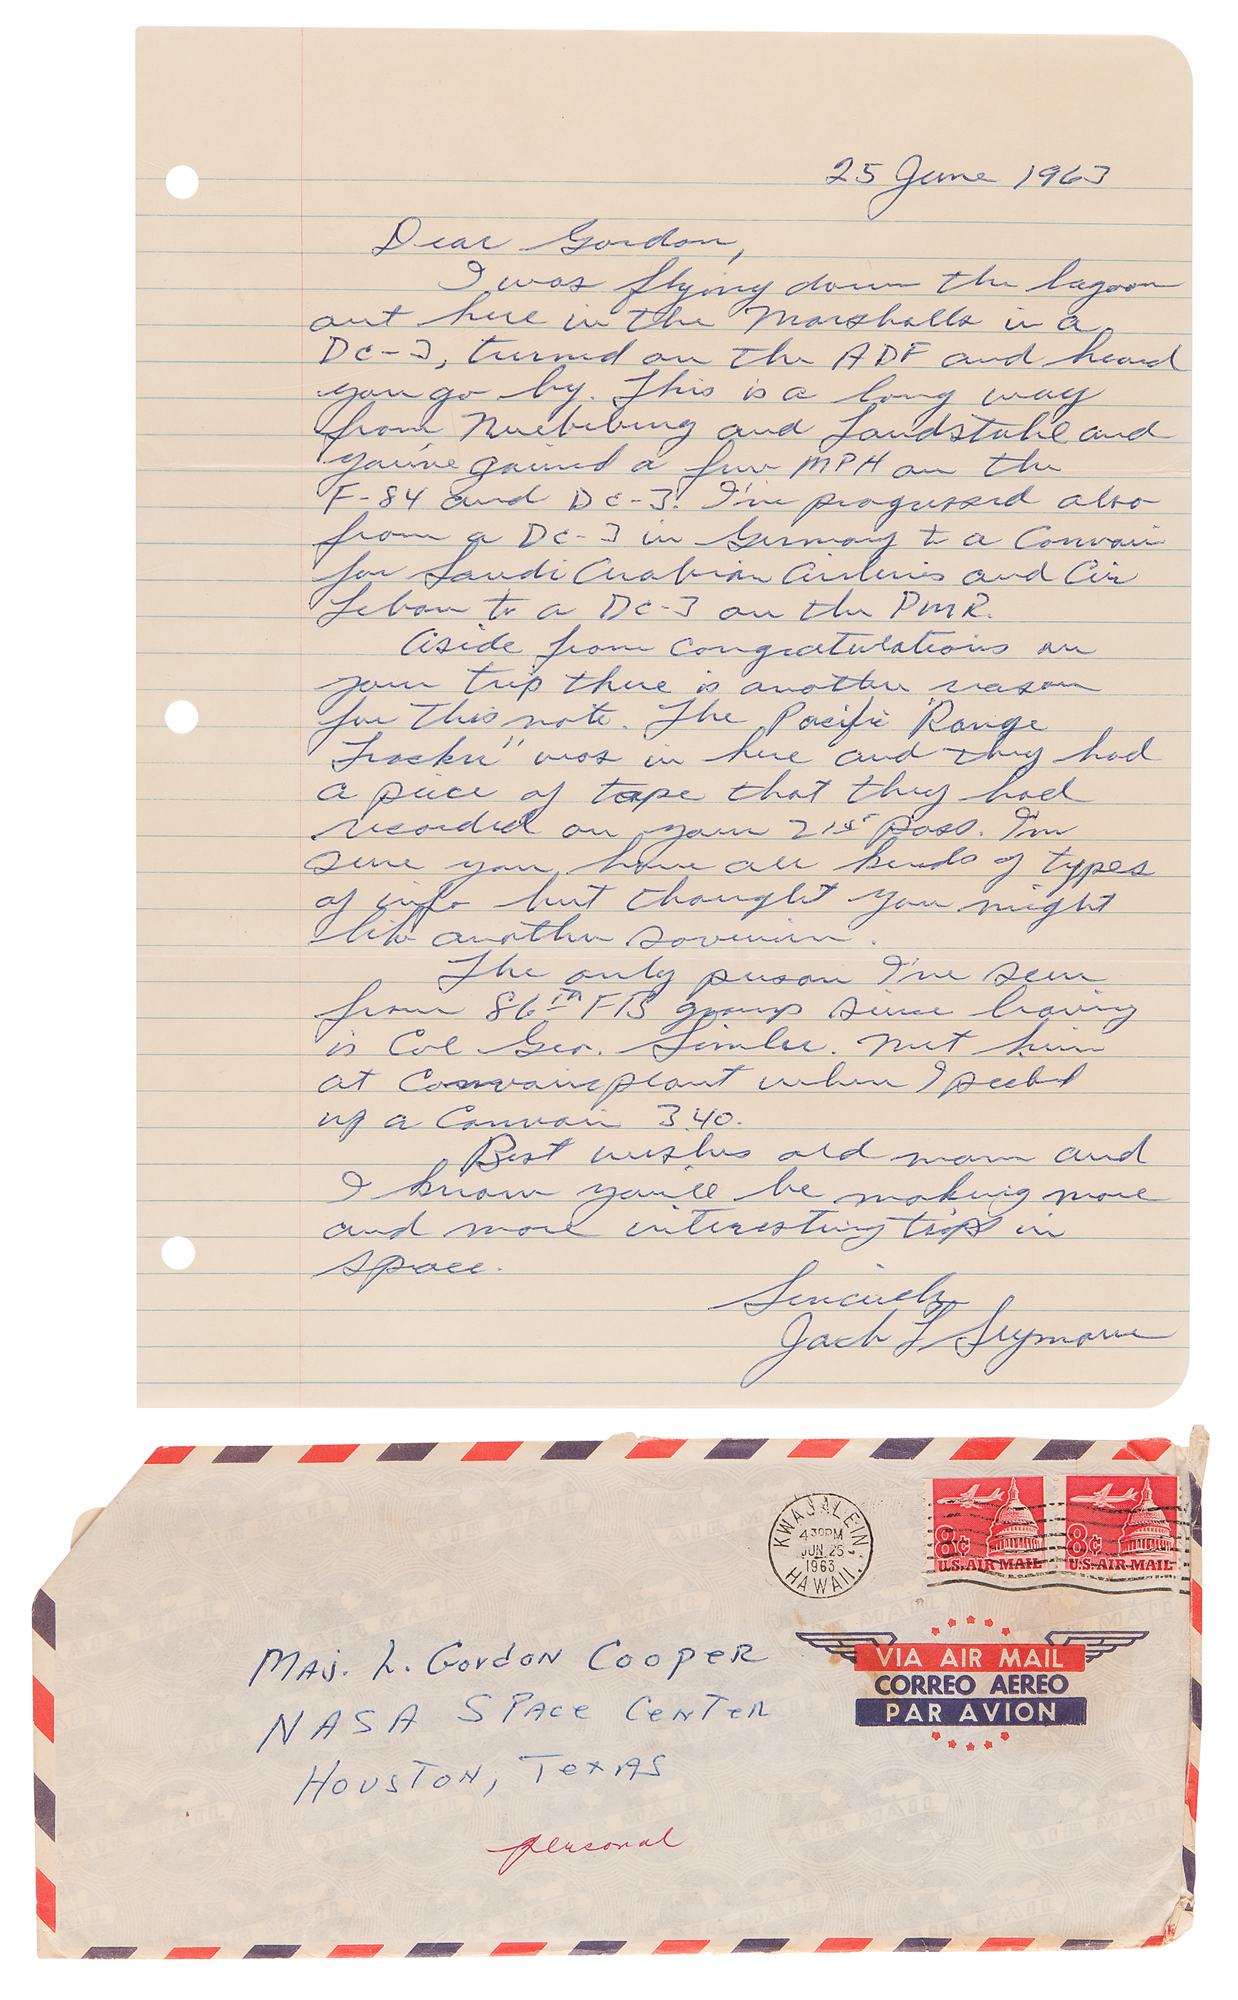 25 June 1963
Dear Gordon,
I was flying down the lagoon
out here in the Marshalls in a
DC-3, turned on the ADF and heard
you go by. This is a long way
from Nuebiburg and Landstuhl and
you've gained a few MPH on the
F-84 and DC-3! I've progressed also
from a DC-3 in Germany to a Convair
for Saudi Arabian Airlines and Air
Leban to a DC-3 on the PMR.
Aside from congratulations on
your trip there is another reason
for this note. The Pacific Range
Tracker" was in here and they had
a piece of tape that they had
recorded on your 21st pass. I'm
sure you have all kinds of types
of info but thought you might
like another sovenir.
The only person I've seen
from 86th FB group since leaving
is Col Geo. Simler. Met him
at Convair plant when I picked
up a Convair 340.
Best wishes old man and
I know you'll be making more
and more interesting trips in
space.
Sincerely
Jack L Seymour
KWAJALEIN,
4 30PM
JUN 25
1963
HAWAII.
8¢
U.S. AIR MAIL
8¢
U.S. AIR MAIL
VIA AIR MAIL
CORREO AEREO
PAR AVION
Maj. L. Gordon Cooper
NASA Space Center
Houston, Texas
personal